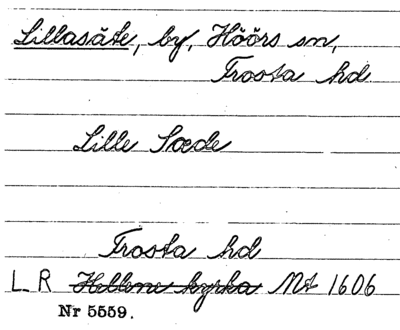 Lillasäte, by, Höörs sn,
Frosta hd
Lille Sæde
Frosta hd
L R Hellene kyrka Mt 1606
Nr 5559.